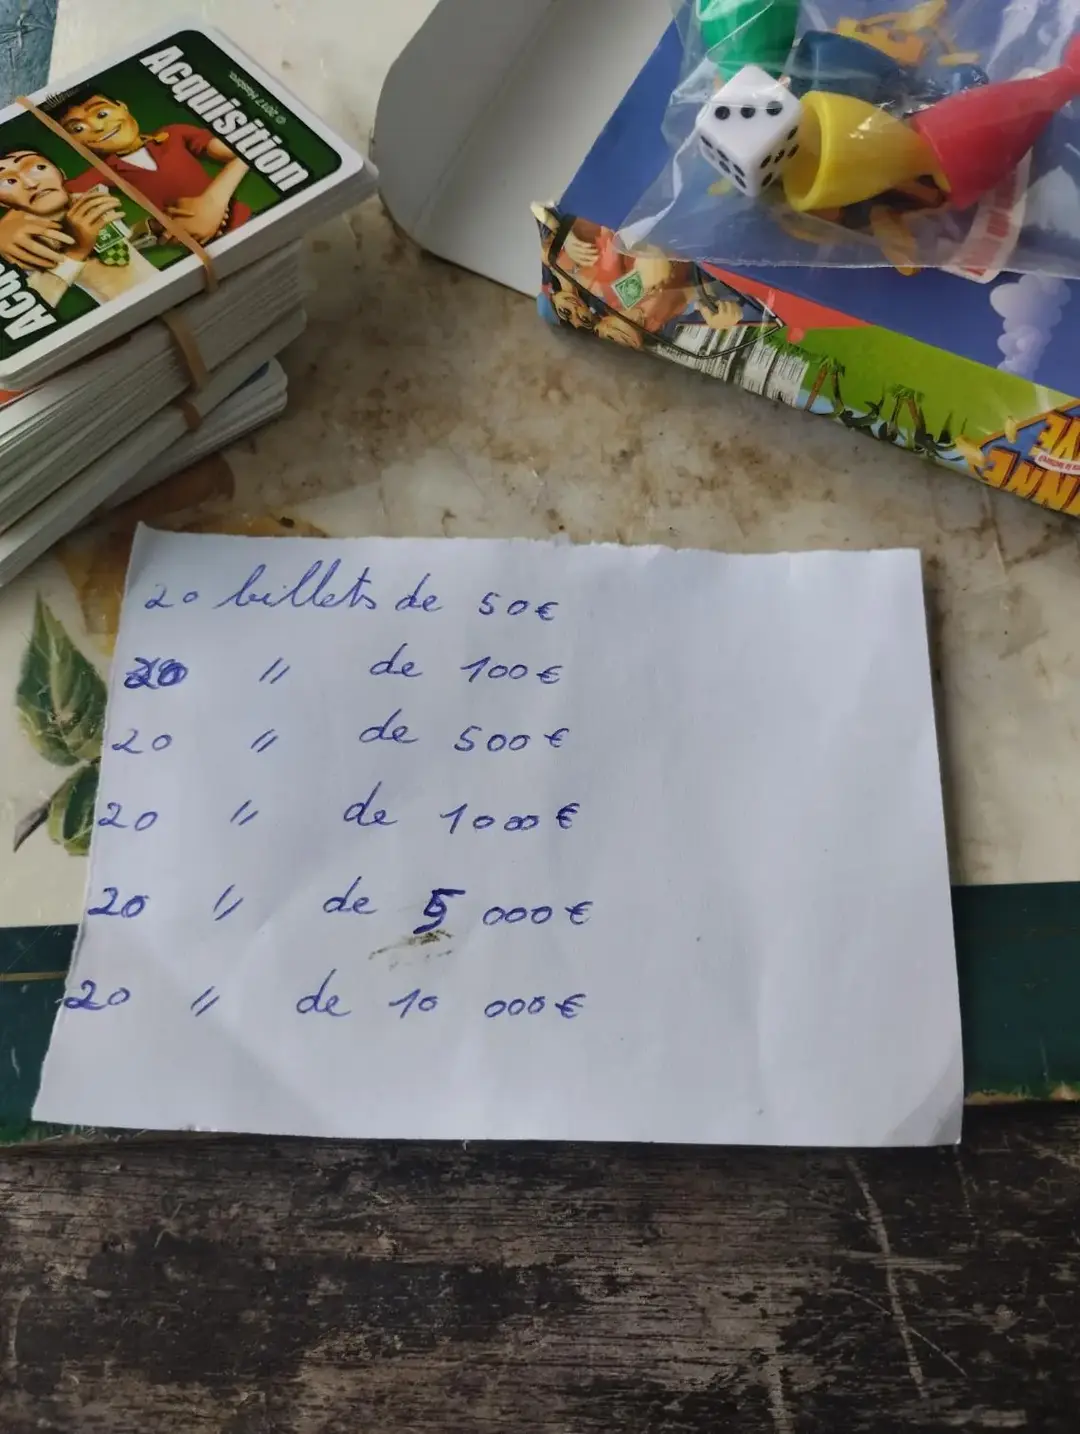 Acquisition
© 2017 Hasbro.
20 billets de 50€
20 〃 de 100€
20 〃 de 500€
20 〃 de 1000€
20 〃 de 5 000€
20 〃 de 10 000€